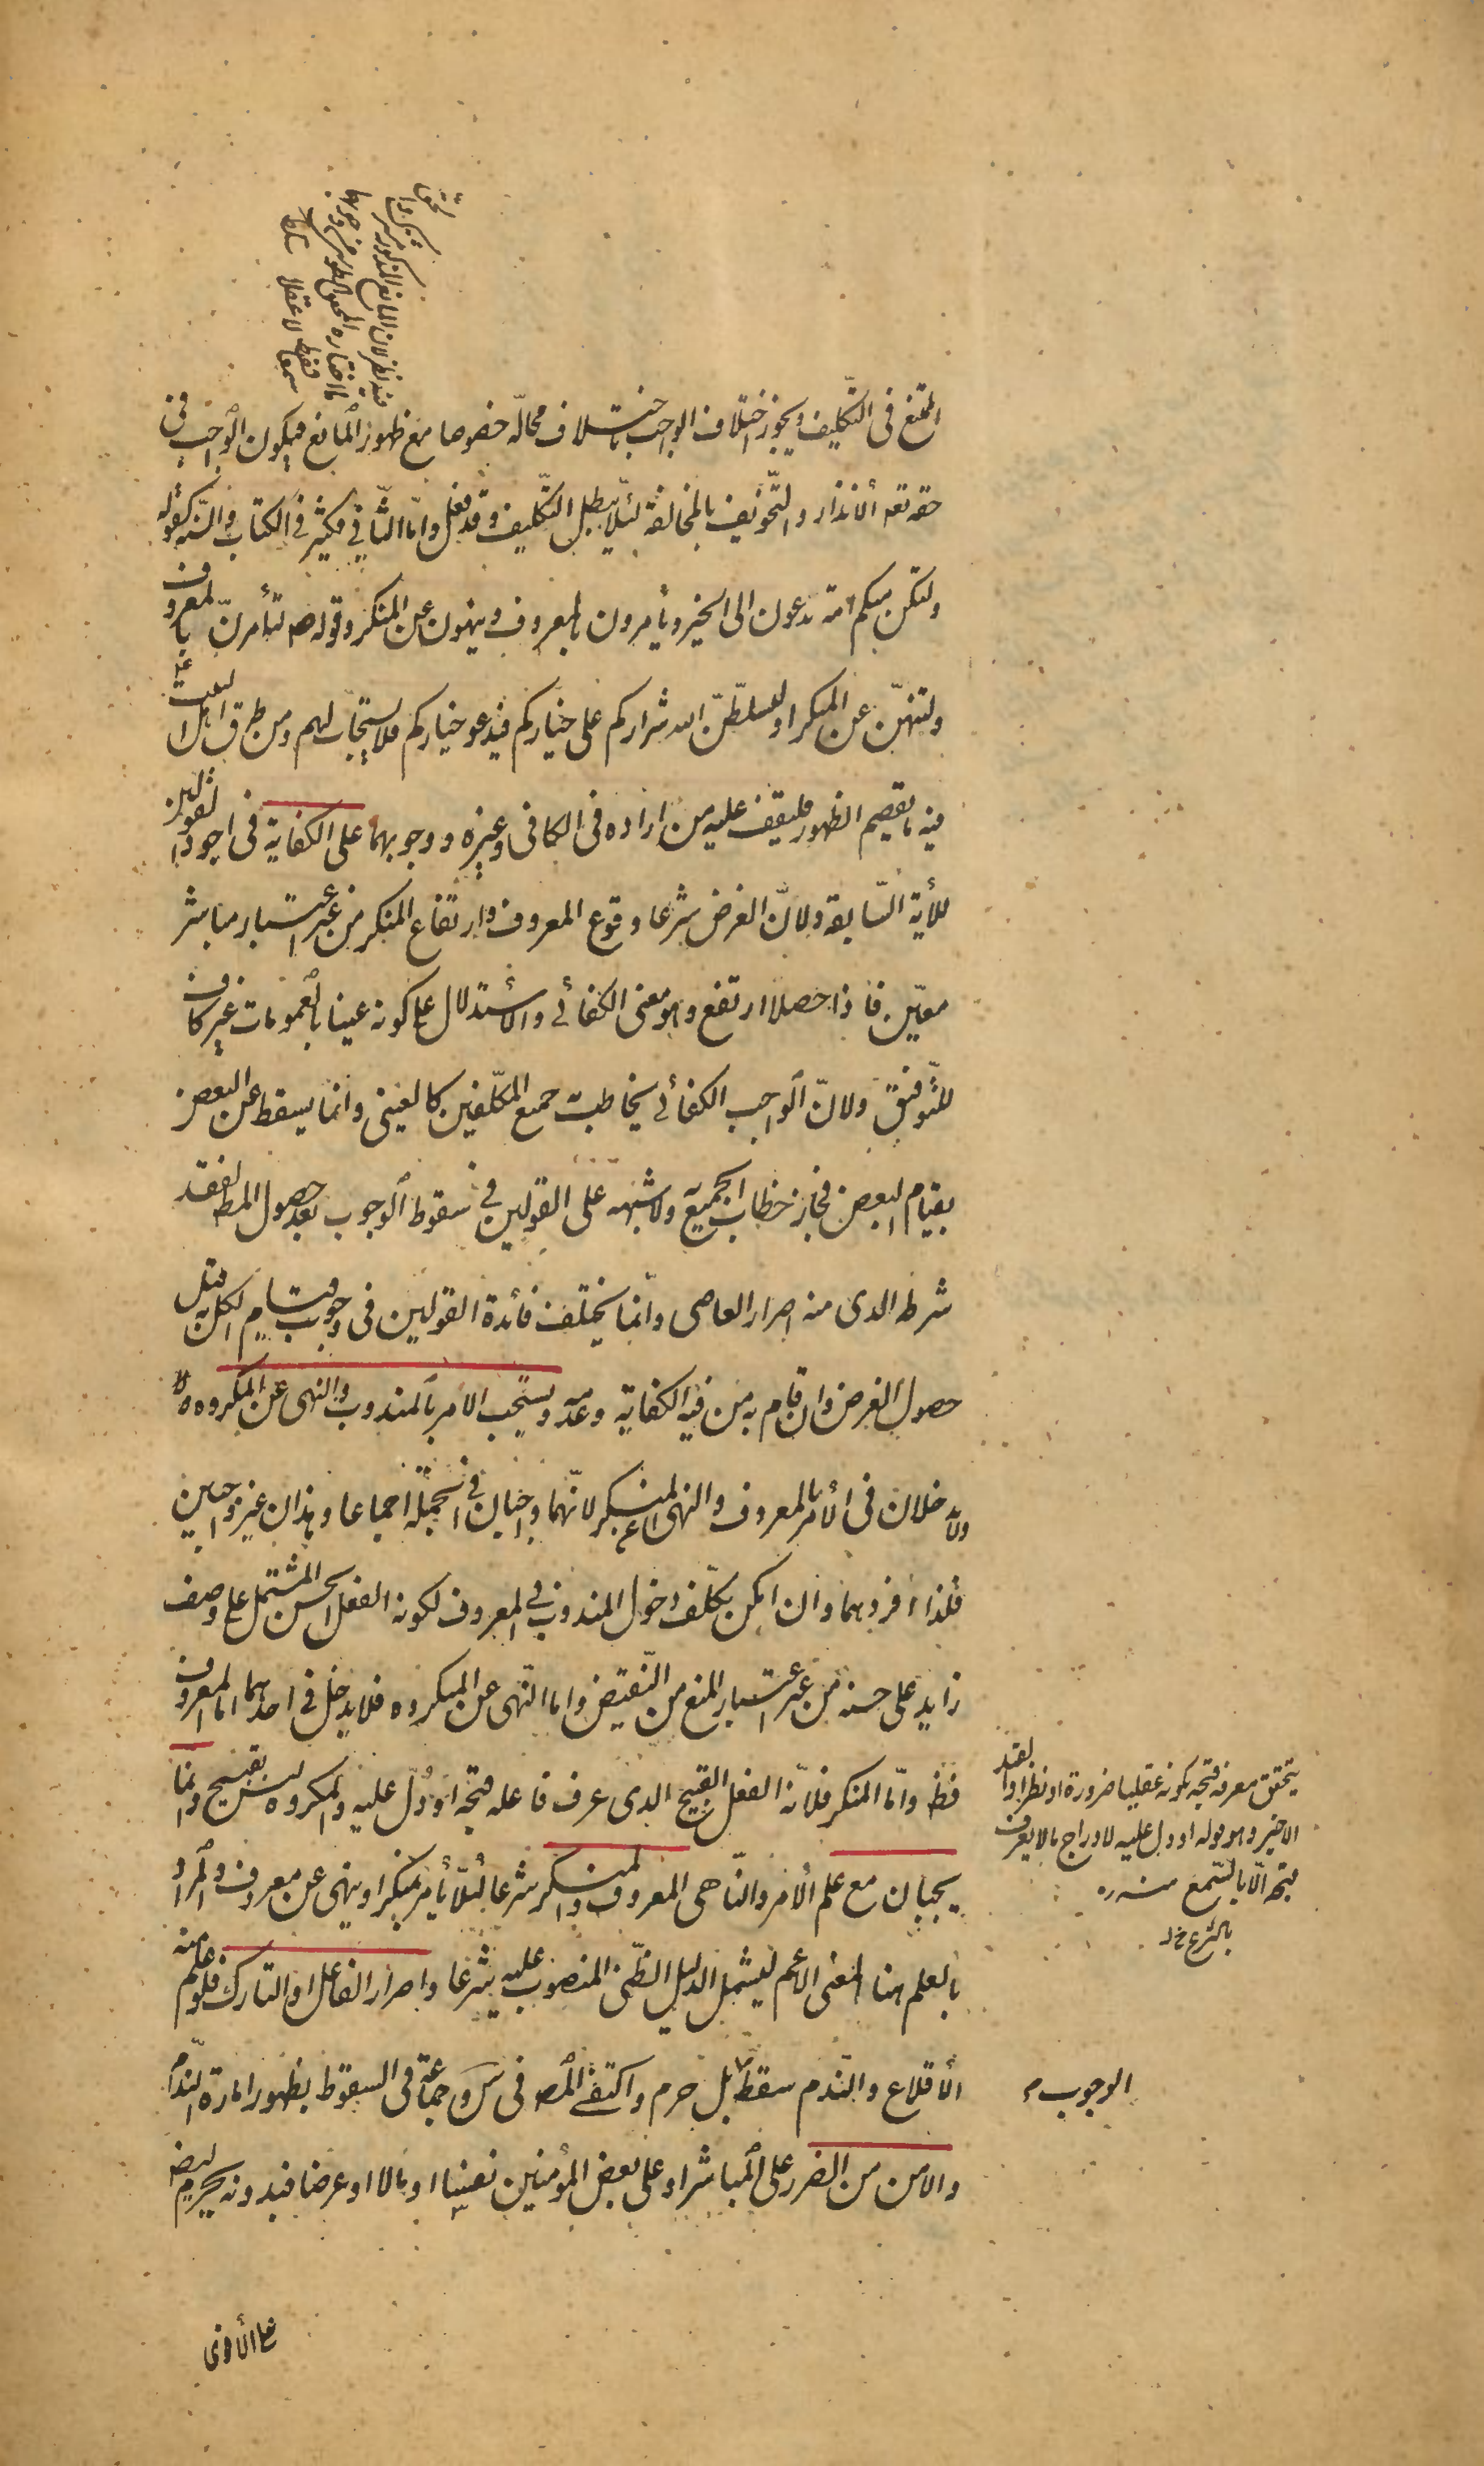 الممتنع فى التّكليف ويجوز اختلاف الواجب باختلاف محالّه خصوصا مع ظهور المانع فيكون الواجب فى
حقه تعه الانذار والتّخويف بالمخالفة لئلّا يبطل التّكليف وقد فعل وامّا الثّانى فكثير فى الكتاب والسّنة كقوله
ولتكن منكم امة يدعون الى الخير ويأمرون بالمعروف وينهون عن المنكر وقوله ص لتأمرنّ بالمعروف
ولتنهنّ عن المنكر او ليسلّطنّ الله شراركم على خياركم فيدعو خياركم فلا يستجاب لهم ومن طرق اهل البيت ع
فيه ما يقصم الظهور فليقف عليه من اراده فى الكافى وغيره ووجوبهما على الكفاية فى اجود القولين
للأية السّابقة ولانّ الغرض شرعا وقوع المعروف وارتفاع المنكر من غير اعتبار مباشر
معيّن فاذا حصلا ارتفع وهو معنى الكفائى والاستدلال على كونه عينيا بالعمومات غير كاف
للتّوفيق ولانّ الواجب الكفائى يخاطب به جميع المكلّفين كالعينى وانما يسقط عن البعض
بقيام البعض فجاز خطاب الجميع به ولا شبهة على القولين فى سقوط الوجوب بعد حصول المط لفقد
شرطه الذى منه اصرار العاصى وانّما يختلف فائدة القولين فى وجوب قيام الكل به قبل
حصول الغرض وان قام به من فيه الكفاية وعدمه ويستحب الامر بالمندوب والنهى عن المكروه ولا
يدخلان فى الأمر بالمعروف والنهى عن المنكر لانّهما واجبان فى الجملة اجماعا وهذان غير واجبين
فلذا افردهما وان امكن تكلّف دخول المندوب فى المعروف لكونه الفعل الحسن المشتمل على وصف
زايد على حسنه من غير اعتبار المنع من النّقيض واما النّهى عن المكروه فلا يدخل فى احدهما اما المعروف
فظ وامّا المنكر فلانّه الفعل القبيح الذى عرف فاعله قبحه او دُلّ عليه والمكروه ليس بقبيح وانّما
يجبان مع علم الأمر والنّاهى المعروف والمنكر شرعا لئلّا يأمر بمنكر او ينهى عن معروف والمراد
بالعلم هنا المعنى الأعم ليشمل الدليل الظّنى المنصوب عليه شرعا واصرار الفاعل او التارك فلو علم منه
الأقلاع والنّدم سقط بل حرم واكتفى المص فى س وجماعة فى السقوط بظهور امارة النّدم
والامن من الضرر على المباشر او على بعض المؤمنين نفسا او مالا او عرضا فبدونه يحرم ايضا
على الأقوى
فيه نظر لان المانع المذكور
ما اختاره المحقق الطوسى
سمعا فقط لا عقلا
يتحقق معرفة قبحه بكونه عقليا ضرورة او نظرا والقيد
الاخير وهو قوله او دل عليه لادراج ما لا يعرف
قبحه الّا بالسّمع منه ره
بالشرع خ ل
الوجوب